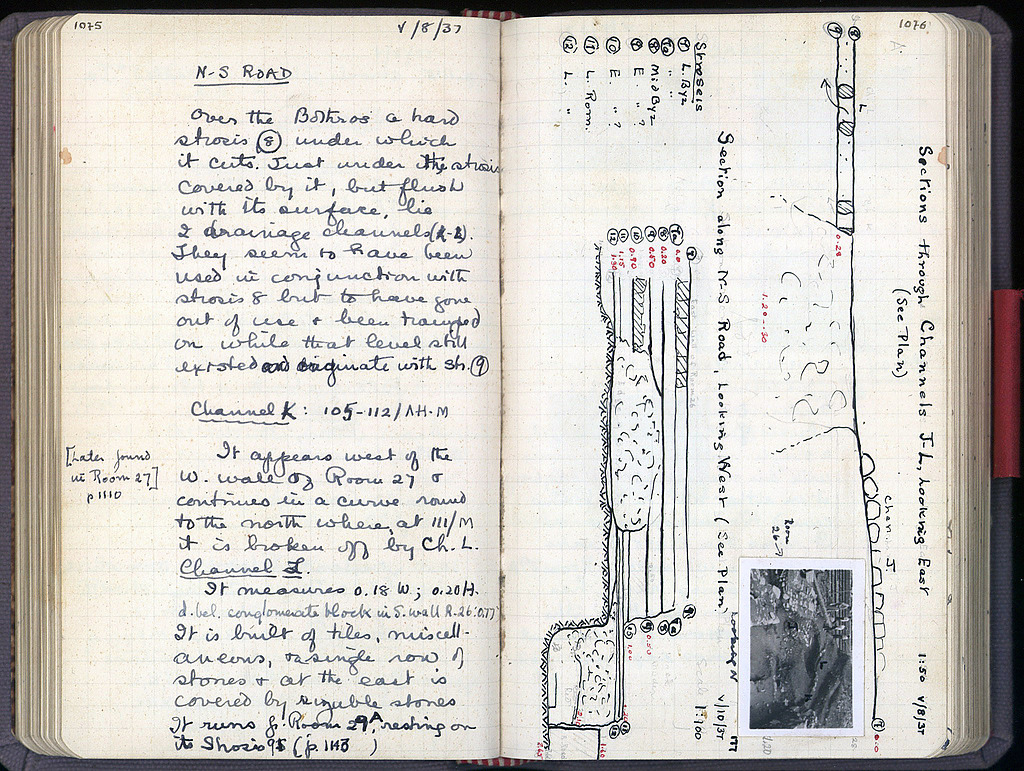 1075
V/8/37
N-S ROAD
Over the Bothros a hard
strosis (8) under which
it cuts. Just under the strosis
covered by it, but flush
with its surface, lie
2 drainage channels
They seem to have been
used in conjunction with
strosis 8 but to have gone
out of use + been tramped
on while that level still
existed originate with str. (9)
Channel K: 105-112/ΛH-M
[Later found
in Room 27]
p 1110
It appears west of the
W. wall of Room 27 &
continues in a curve round
to the north where, at 111/M
it is broken off by Ch. L.
Channel
It measures 0.18 W; 0.20 H.
d. bel. conglomerate block in S. wall R. 26: 0.77
It is built of tiles, miscell-
aneous, & a single row of
stones & at the east is
covered by sizable stones
It runs fr. Room 29A, resting on
its Strosis
1076
Sections through Channels J-L, looking East 1:50 V/8/37
(See Plan)
L
0.28
1.20-.30
Chan. J
Room
0.0
Section along N-S Road, Looking West (See Plan) V/10/37
1:100
Looking N
Stroseis
(9) L. Byz
(9a) " "
(8) Mid Byz
(9) E " ?
(10) E. " ?
(11) L. Rom.
(12) L. "
(9a) 0.0
(8) 0.20
(9) 0.50
(10) 0.90
(11) 1.15
(12) 1.30
0.50
1.00